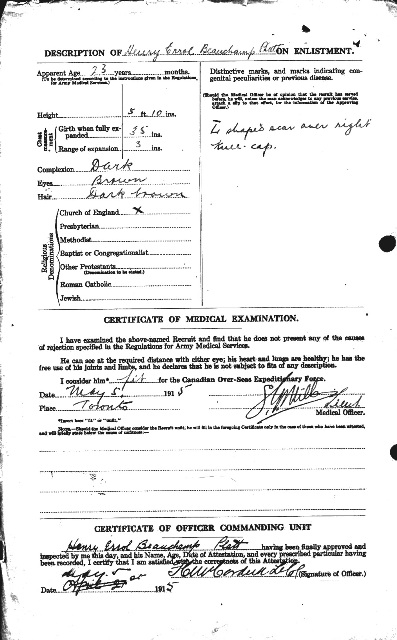 DESCRIPTION OF Henry Errol Beauchamp Platt ON ENLISTMENT.
Apparent Age 23 years months.
(To be determined according to the instructions given in the Regulations for Army Medical Services.)
Height 5 ft 10 ins.
Chest measurement
Girth when fully expanded 35 ins.
Range of expansion 3 ins.
Complexion Dark
Eyes Brown
Hair Dark brown
Religious Denominations
Church of England x
Presbyterian
Methodist
Baptist or Congregationalist
Other Protestants
(Denomination to be stated.)
Roman Catholic
Jewish
Distinctive marks, and marks indicating congenital peculiarities or previous disease.
(Should the Medical Officer be of opinion that the recruit has served before, he will, unless the man acknowledges to any previous service, attach a slip to that effect, for the information of the Approving Officer.)
shaped scar over right
knee-cap.
CERTIFICATE OF MEDICAL EXAMINATION.
I have examined the above-named Recruit and find that he does not present any of the causes
of rejection specified in the Regulations for Army Medical Services.
He can see at the required distance with either eye; his heart and lungs are healthy; he has the
free use of his joints and limbs, and he declares that he is not subject to fits of any description.
I consider him* fit for the Canadian Over-Seas Expeditionary Force.
Date May 5 1915
Place Toronto
Medical Officer.
*Insert here "fit" or "unfit."
NOTE.—Should the Medical Officer consider the Recruit unfit, he will fill in the foregoing Certificate only in the case of those who have been attested,
and will briefly state below the cause of unfitness:—
CERTIFICATE OF OFFICER COMMANDING UNIT
Henry Errol Beauchamp Platt having been finally approved and
inspected by me this day, and his Name, Age, Date of Attestation, and every prescribed particular having
been recorded, I certify that I am satisfied with the correctness of this Attestation.
May 5
(Signature of Officer.)
Date April 1915